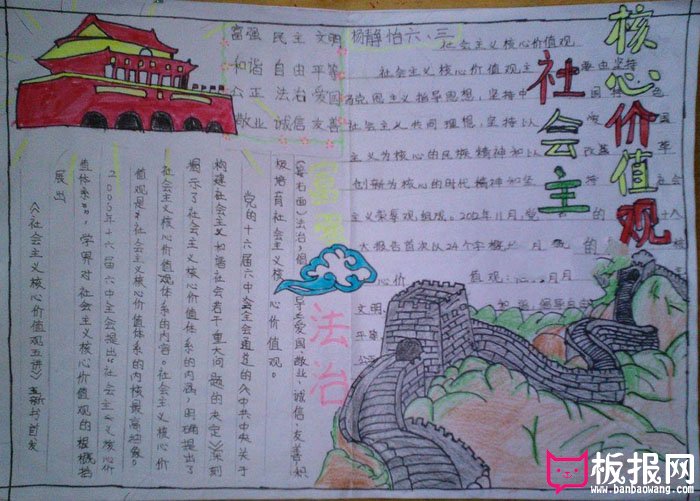 核心价值观
社会主
富强 民主 文明
和谐 自由 平等
公正 法治 爱国
敬业 诚信 友善
杨静怡六、三
社会主义核心价值观
社会主义核心价值观主
中坚持
克思主义指导思想，坚持中
社会主义共同理想，坚持以
主义为核心的民族精神和以
改革
创新为核心的时代精神和坚持
社会
主义荣辱观组成。2012年11月，
的
十八
大报告首次以24个字概
的
心价
值观：
文明、
和谐、倡导自由
平等
公正
富强
法治
（接右面）法治，倡导爱国敬业、诚信、友善积
极培育社会主义核心价值观。
党的十六届六中全会通过的《中共中央关于
构建社会主义和谐社会若干重大问题的决定》深刻
揭示了社会主义核心价值体系的内涵，明确提出了
社会主义核心价值观体系的内容。社会主义核心价
值观是社会主义核心价值体系的内核最高抽象。
2005年十六届六中全会提出“社会主义核心价
值体系”，学界对社会主义核心价值观的概括
展出
《社会主义核心价值观五讲》新书首发
板报网
www.banbaowang.com